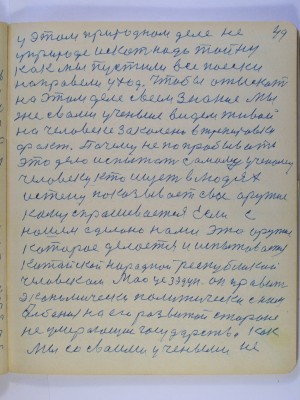 49
у этом природном деле не
природе искат надо тайну
как мы пустили все поески
направели уход. Чтобы отыскат
на этом деле своем Знание Мы
же свами ученые видем живой
на человеке Закалено в тренировки
факт. Почему не попробыват
это дело испытат самому ученому
человеку кто ищет в людях
истену показывает свае оружие
каму спрашивается Если с
нашем сделано нами это оружие
которае делается и испытоват
Китайской народной республикой
человеком Мао це Дздун. он правит
экономически политически сним
на его развитой стороне
не умерающие государство. Как
мы со своими учеными не